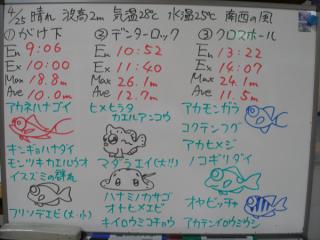 4/25 晴れ 波高2m 気温28℃ 水温25℃ 南西の風
①がけ下
En 9:06
Ex 10:00
Max 18.8m
Ave 10.0m
アカネハナゴイ
キンギョハナダイ
モンツキカエルウオ
イスズミの群れ
フリソデエビ(大・小)
②デンターロック
En 10:52
Ex 11:40
Max 26.1m
Ave 12.7m
ヒメヒラタ
カエルアンコウ
マダラエイ(大!!)
ハナミノカサゴ
オトヒメエビ
キイロウミコチョウ
③クロスホール
En 13:22
Ex 14:07
Max 24.1m
Ave 11.5m
アカモンガラ
コクテンフグ
アカヒメジ
ノコギリダイ
オヤビッチャ
アカテンイロウミウシ